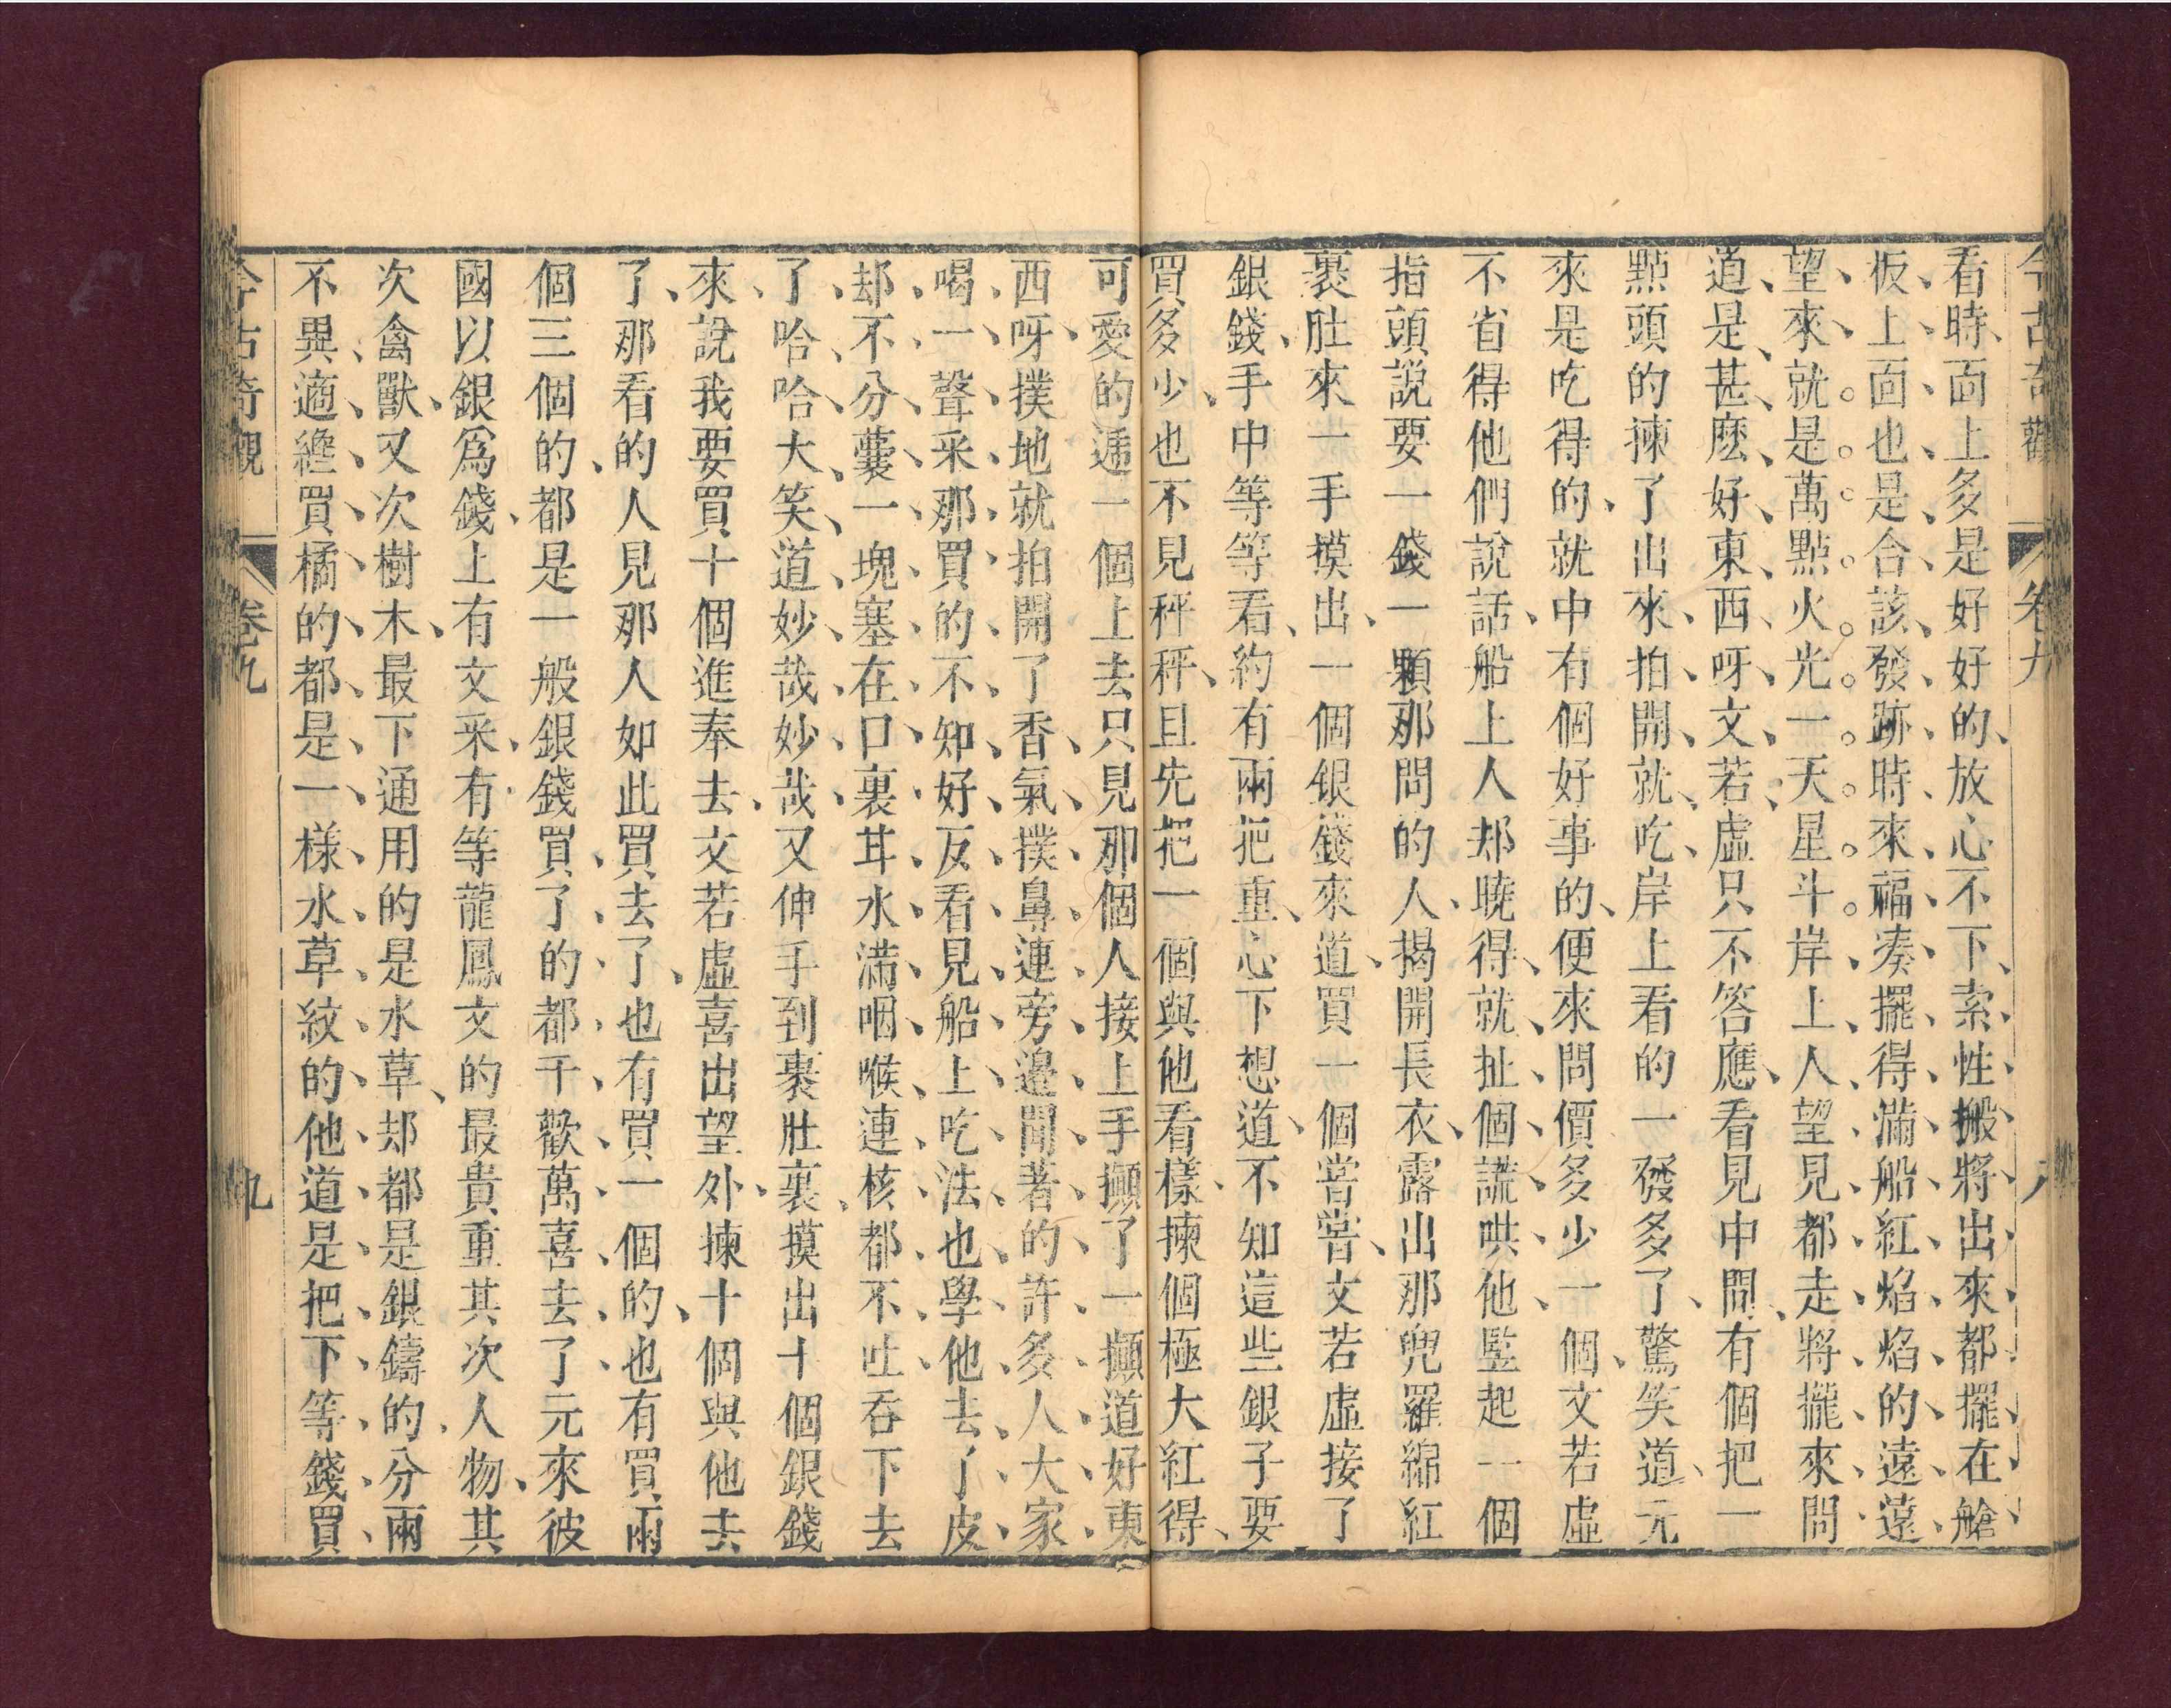 今古奇觀 卷九 八
看時、面上多是好好的、放心不下、索性、搬、將、出、來、都、擺、在、艙、
板、上、面、也、是、合、該、發、跡、時、來、福、湊、擺、得、滿、船、紅、焰、焰、的、遠、遠、
望、來、就。是。萬。點。火。光。一。天。星。斗。岸、上、人、望、見、都、走、將、攏、來、問、
道、是、甚、麽、好、東、西、呀、文、若、虛只不答應、看見中間、有個把一
點頭的揀了出來、拍、開、就、吃、岸上看的一發多了、驚笑道、元
來是吃得的、就中有個好事的、便來問價、多、少、一個、文若虛
不省得他們說話、船上人却曉得、就、扯、個、謊、哄、他、竪起一個
指頭說要一錢一顆那問的人、揭開長衣、露出那兜羅綿紅
裹肚來一手摸出、一個銀錢來道、買一個嘗嘗、文若虛接了
銀錢、手中等等看、約有兩把重、心下想道、不知這些銀子要
買多少、也不見秤秤、且先把一個與他看樣、揀個極大紅得、
可愛的遞一個上去只見那個人接上手攧了一攧道好東
西呀、撲地就拍開了香、氣、撲、鼻。連旁邊聞著的許多人大家
喝、一、聲、采、那、買、的、不、知、好、反、看、見、船、上、吃、法、也、學、他、去、了、皮、
却、不、分、囊、一、塊、塞、在、口、裏、甘、水、滿、咽、喉、連、核、都、不、吐、吞下去
了、哈、哈、大、笑、道、妙、哉、妙、哉、又伸手到裹肚裏、摸出十個銀錢
來、說我要買十個進奉去、文若虛喜出望外、揀十個與他去
了、那看的人見那人如此買去了、也有買一個的、也有買兩
個三個的、都是一般銀錢買、了、的、都、千、歡、萬、喜、去、了、元來彼
國以銀爲錢、上有文采、有等龍鳳文的最貴重其次人物、其
次禽獸、又次樹木、最下通用的是水草、却都是銀鑄的、分兩
不異、適、纔、買、橘、的、都、是、一、樣、水、草、紋、的、他、道、是、把、下、等、錢、買、
今古奇觀 卷九 九